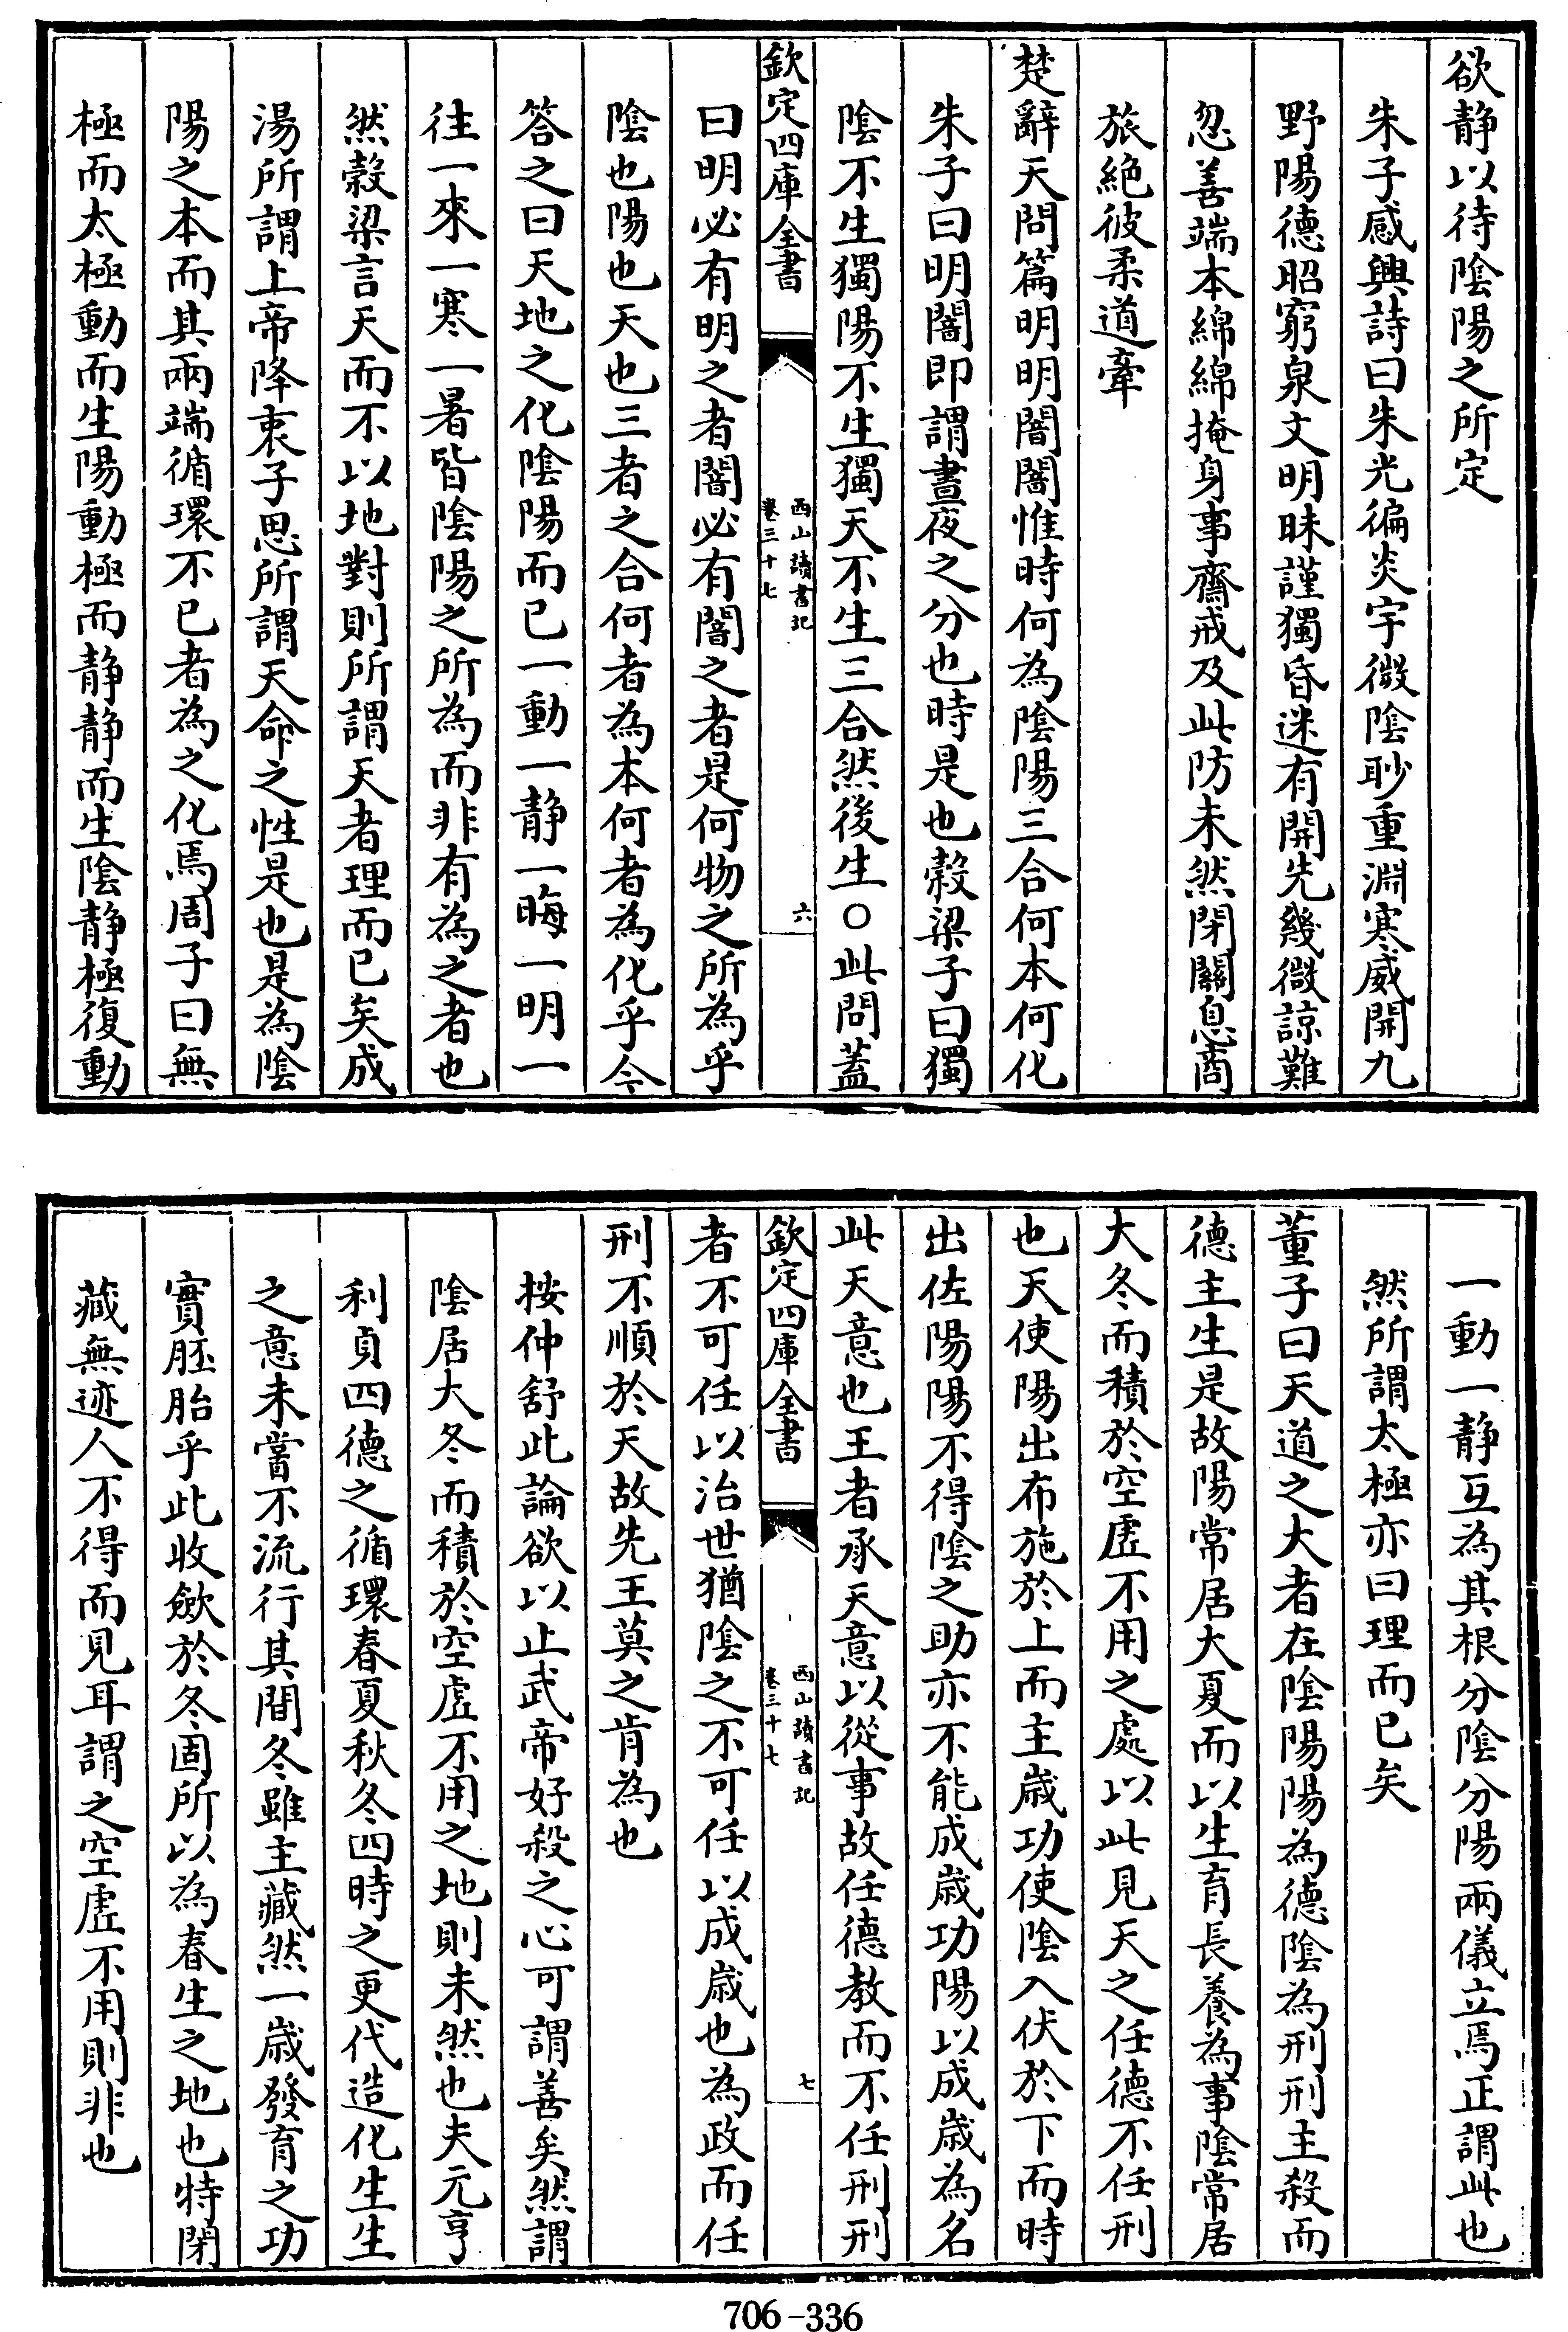 欲静以待陰陽之所定
朱子感興詩曰朱光徧炎宇微陰眇重淵寒威開九
野陽德昭窮泉文明昧謹獨昏迷有開先幾微諒難
忽善端本綿綿掩身事齋戒及此防未然閉關息商
旅絶彼柔道牽
楚辭天問篇明明闇闇惟時何為陰陽三合何本何化
朱子曰明闇即謂晝夜之分也時是也穀梁子曰獨
陰不生獨陽不生獨天不生三合然後生○此問蓋
欽定四庫全書
西山讀書記
卷三十七
六
曰明必有明之者闇必有闇之者是何物之所為乎
陰也陽也天也三者之合何者為本何者為化乎今
答之曰天地之化陰陽而已一動一静一晦一明一
往一來一寒一暑皆陰陽之所為而非有為之者也
然穀梁言天而不以地對則所謂天者理而已矣成
湯所謂上帝降衷子思所謂天命之性是也是為陰
陽之本而其兩端循環不已者為之化焉周子曰無
極而太極動而生陽動極而静静而生陰静極復動
一動一静互為其根分陰分陽兩儀立焉正謂此也
然所謂太極亦曰理而已矣
董子曰天道之大者在陰陽陽為德陰為刑刑主殺而
德主生是故陽常居大夏而以生育長養為事陰常居
大冬而積於空虛不用之處以此見天之任德不任刑
也天使陽出布施於上而主歲功使陰入伏於下而時
出佐陽陽不得陰之助亦不能成歲功陽以成歲為名
此天意也王者承天意以從事故任德教而不任刑刑
欽定四庫全書
西山讀書記
卷三十七
七
者不可任以治世猶陰之不可任以成歲也為政而任
刑不順於天故先王莫之肯為也
按仲舒此論欲以止武帝好殺之心可謂善矣然謂
陰居大冬而積於空虛不用之地則未然也夫元亨
利貞四德之循環春夏秋冬四時之更代造化生生
之意未嘗不流行其間冬雖主藏然一歲發育之功
實胚胎乎此收歛於冬固所以為春生之地也特閉
藏無迹人不得而見耳謂之空虛不用則非也
706-336